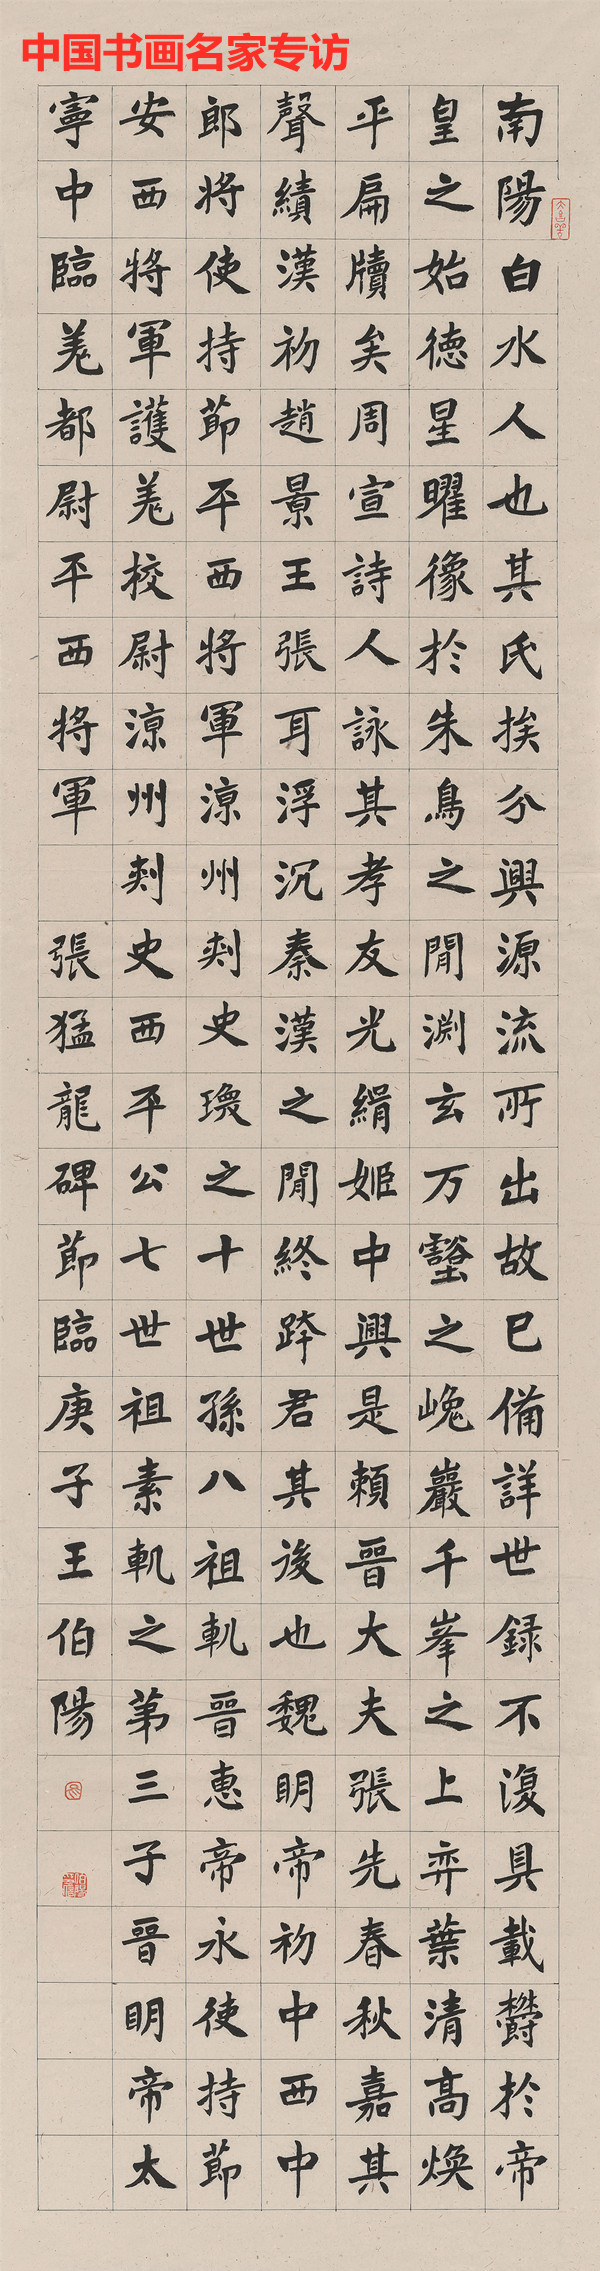 中国书画名家专访
南陽白水人也其氏挨分興源流所出故已備詳世録不復具載欝於帝
皇之始徳星曜像於朱鳥之閒渊玄万壑之巉巖千峯之上弈葉清高煥
平扁牘矣周宣詩人詠其孝友光緝姬中興是頼晉大夫張先春秋嘉其
聲績漢初趙景王張耳浮沉秦漢之閒終跨君其後也魏明帝初中西中
郎將使持節平西將軍涼州刺史瓌之十世孫八祖軌晉惠帝永使持節
安西將軍護羌校尉涼州刺史西平公七世祖素軌之第三子晉明帝太
寧中臨羌都尉平西將軍　張猛龍碑節臨庚子王伯陽